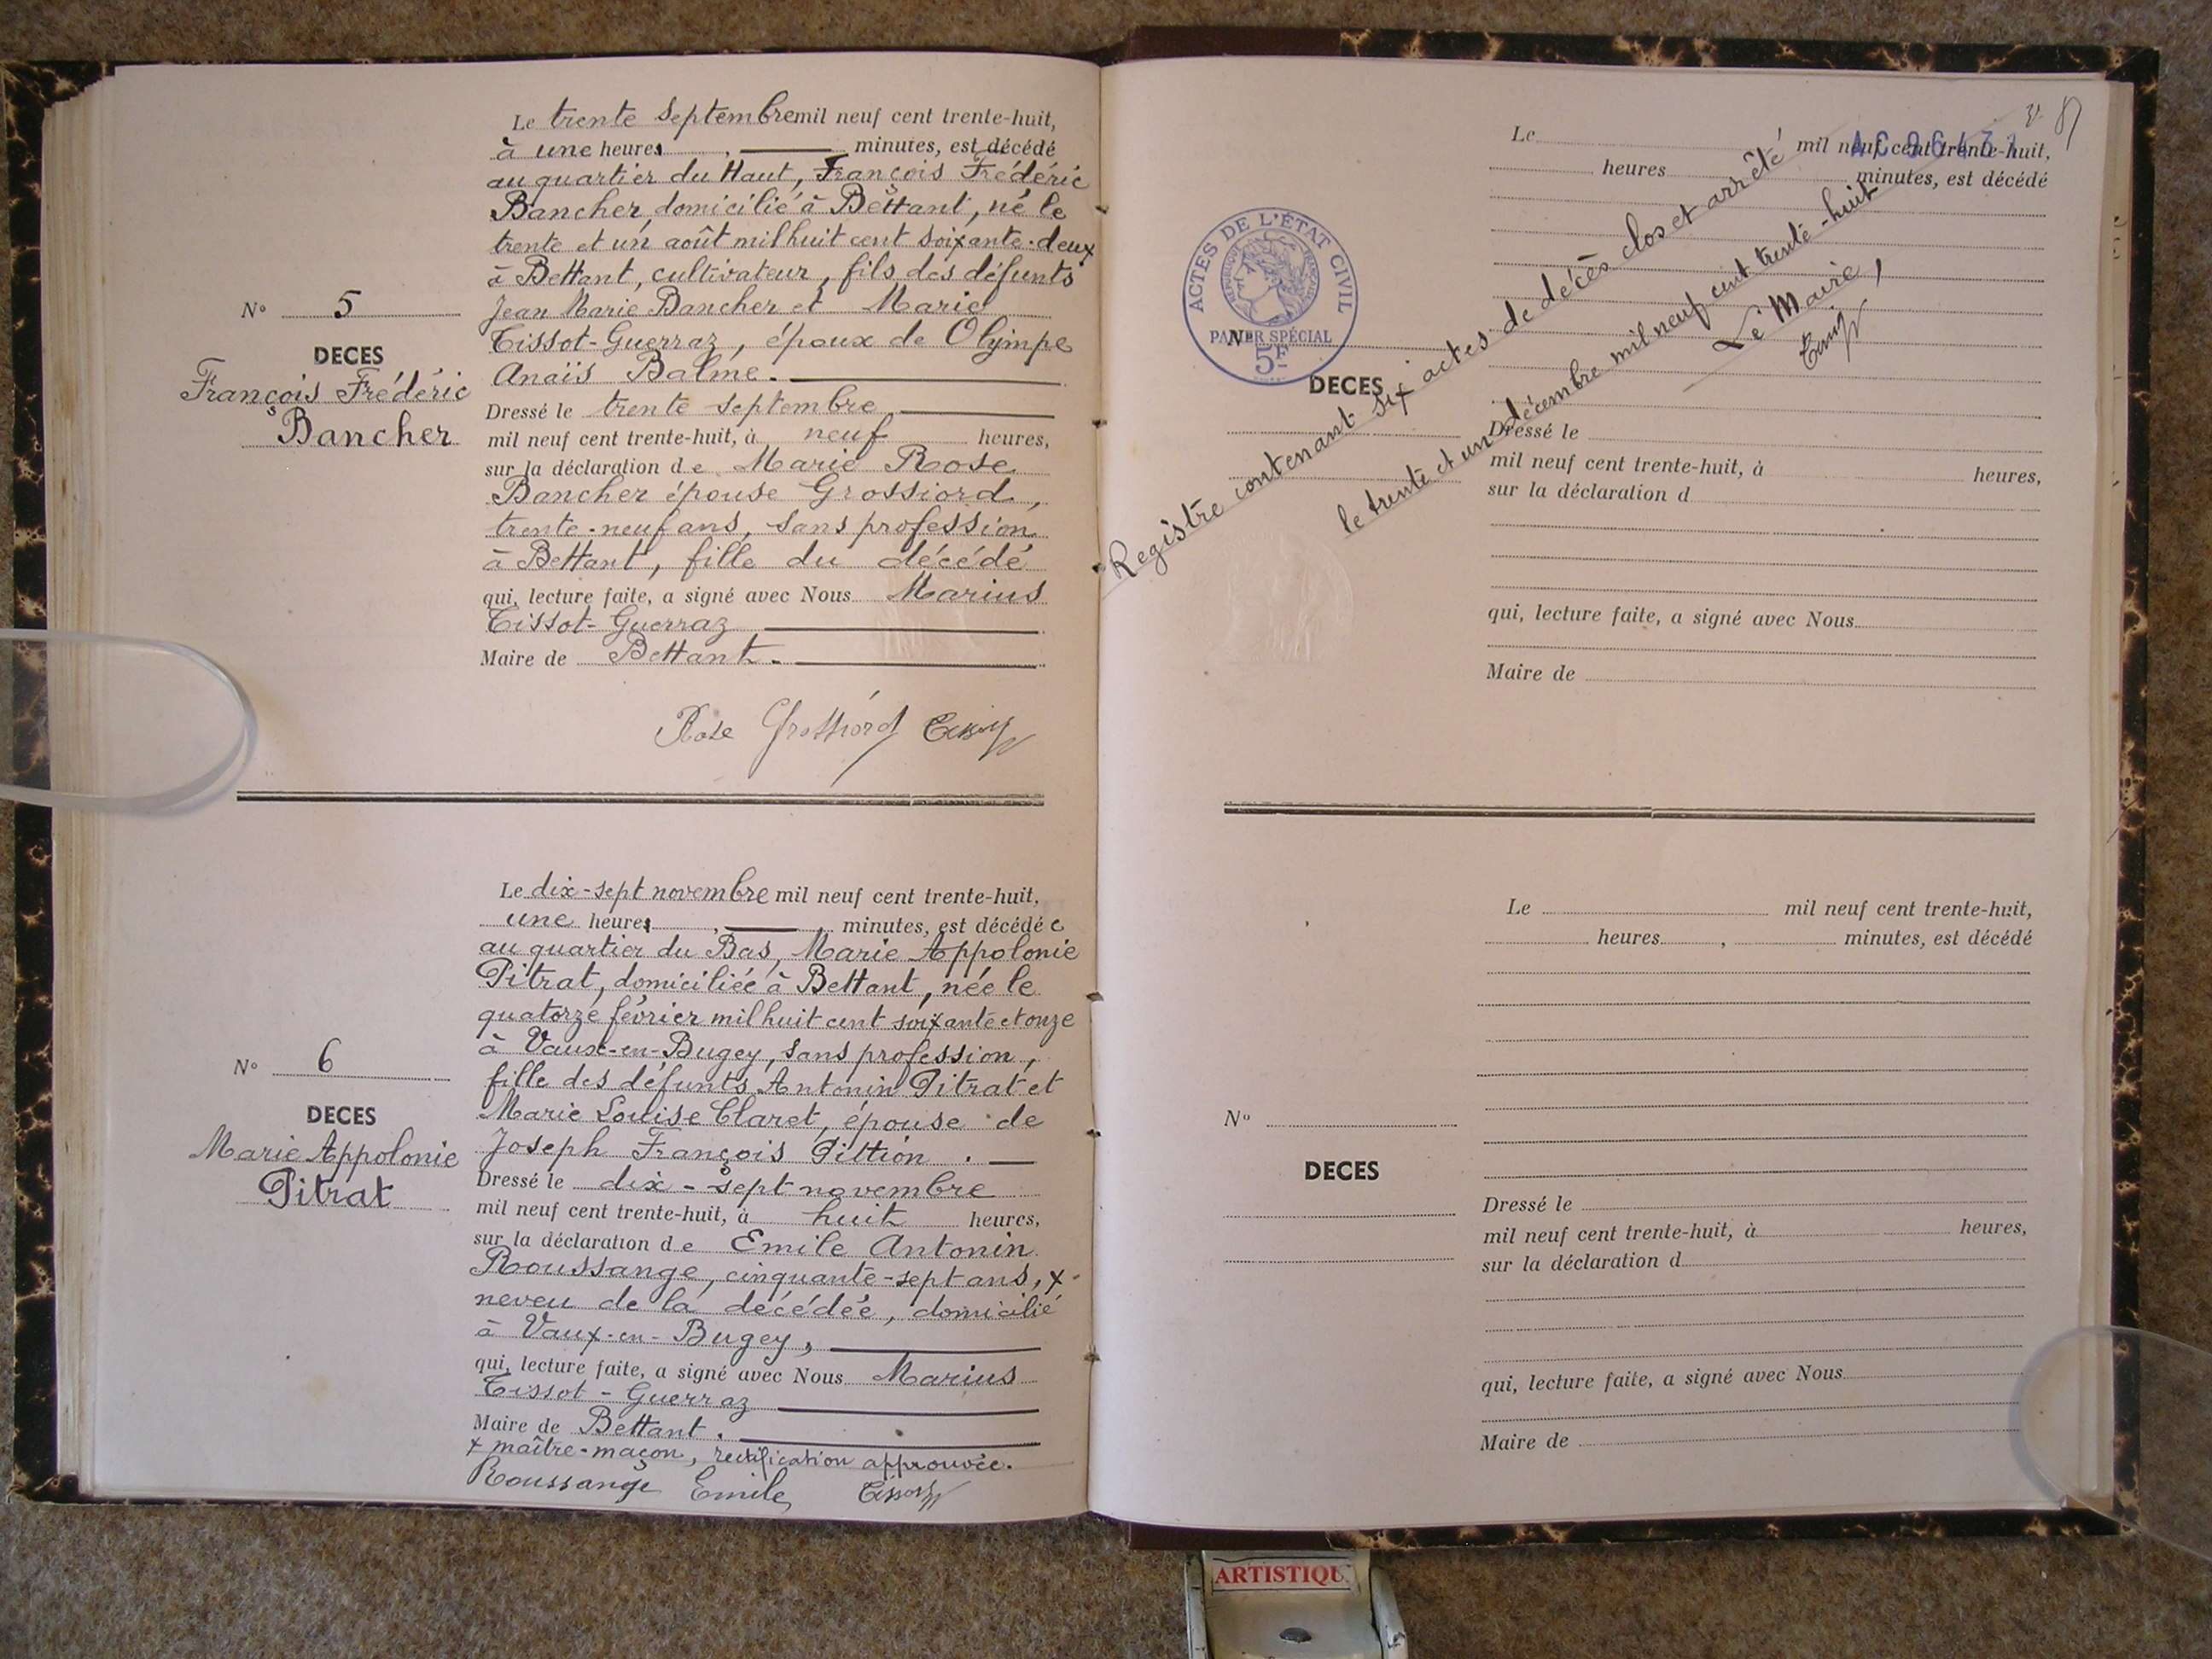 Le trente septembre mil neuf cent trente-huit,
à une heures , minutes, est décédé
au quartier du Haut, François Frédéric
Bancher, domicilié à Bettant, né le
trente et un août mil huit cent soixante-deux
à Bettant, cultivateur, fils des défunts
Jean Marie Bancher et Marie
Tissot-Guerraz, époux de Olympe
Anaïs Balme.
N° 5
DECES
François Frédéric
Bancher
Dressé le trente septembre
mil neuf cent trente-huit, à neuf heures,
sur la déclaration de Marie Rose
Bancher épouse Grossiord,
trente-neuf ans, sans profession
à Bettant, fille du décédé
qui, lecture faite, a signé avec Nous Marius
Tissot-Guerraz
Maire de Bettant.
Rose Grossiord
Le dix-sept novembre mil neuf cent trente-huit,
une heures , minutes, est décédée
au quartier du Bas, Marie Appolonie
Pitrat, domiciliée à Bettant, née le
quatorze février mil huit cent soixante et onze
à Vaux-en-Bugey, sans profession,
fille des défunts Antonin Pitrat et
Marie Louise Claret, épouse de
Joseph François Pittion.
N° 6
DECES
Marie Appolonie
Pitrat
Dressé le dix-sept novembre
mil neuf cent trente-huit, à huit heures,
sur la déclaration de Emile Antonin
Roussange, cinquante-sept ans, x
neveu de la décédée, domicilié
à Vaux-en-Bugey,
qui, lecture faite, a signé avec Nous Marius
Tissot-Guerraz
Maire de Bettant.
x maître-maçon, rectification approuvée.
Roussange Emile
Le mil neuf cent trente-huit,
heures minutes, est décédé
ACTES DE L'ÉTAT CIVIL
RÉPUBLIQUE FRANÇAISE
PAPIER SPÉCIAL
5F
N°
DECES
Registre contenant six actes de décès clos et arrêté
le trente et un décembre mil neuf cent trente-huit
Le Maire,
Dressé le
mil neuf cent trente-huit, à heures,
sur la déclaration d
qui, lecture faite, a signé avec Nous
Maire de
Le mil neuf cent trente-huit,
heures , minutes, est décédé
N°
DECES
Dressé le
mil neuf cent trente-huit, à heures,
sur la déclaration d
qui, lecture faite, a signé avec Nous
Maire de
ARTISTIQU